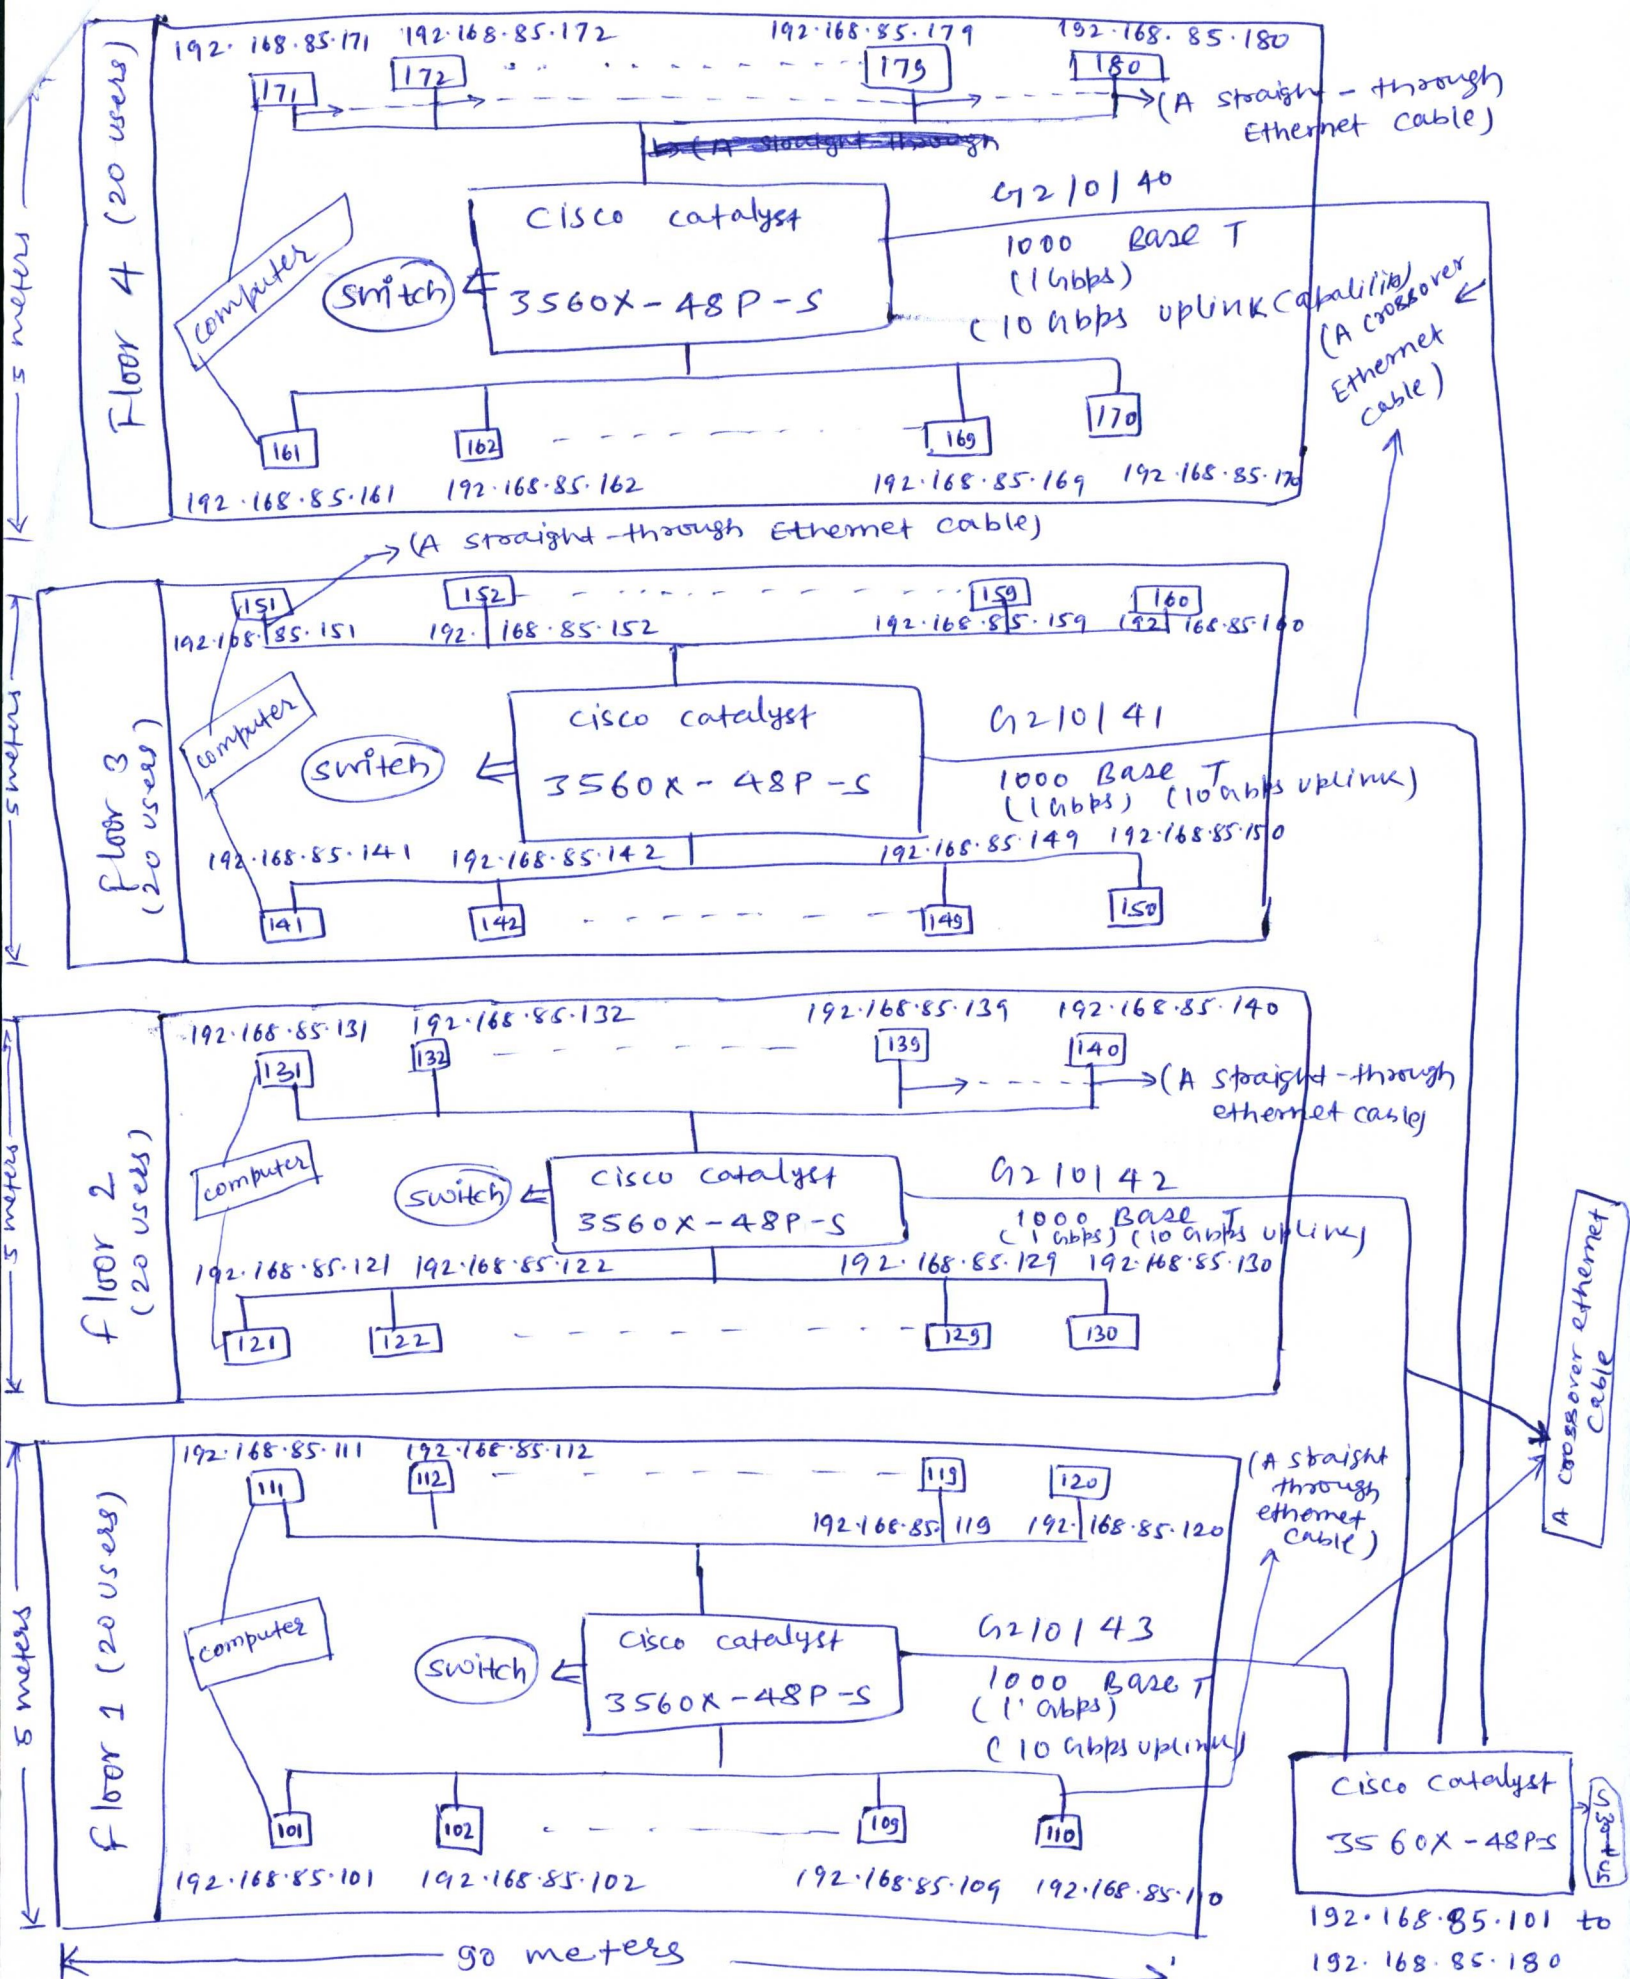 192.168.85.171 192.168.85.172 192.168.85.179 192.168.85.180
171 172 179 180
(A straight-through
Ethernet cable)
Floor 4 (20 users)
5 meters
G2/0/40
cisco catalyst
3560X-48P-S
switch
computer
1000 Base T
(1Gbps)
(10 Gbps uplink Capability)
(A crossover
Ethernet
cable)
161 162 169 170
192.168.85.161 192.168.85.162 192.168.85.169 192.168.85.170
(A straight-through Ethernet cable)
151 152 159 160
192.168.85.151 192.168.85.152 192.168.85.159 192.168.85.160
Floor 3
(20 users)
5 meters
computer
switch
cisco catalyst
3560X-48P-S
G2/0/41
1000 Base T
(1Gbps) (10Gbps uplink)
192.168.85.141 192.168.85.142 192.168.85.149 192.168.85.150
141 142 149 150
192.168.85.131 192.168.85.132 192.168.85.139 192.168.85.140
131 132 139 140
(A straight-through
ethernet cable)
Floor 2
(20 users)
5 meters
computer
switch
cisco catalyst
3560X-48P-S
G2/0/42
1000 Base T
(1 Gbps) (10 Gbps uplink)
192.168.85.121 192.168.85.122 192.168.85.129 192.168.85.130
121 122 129 130
A crossover ethernet
cable
192.168.85.111 192.168.85.112
111 112 119 120
192.168.85.119 192.168.85.120
(A straight
through
ethernet
cable)
Floor 1 (20 users)
5 meters
computer
switch
cisco catalyst
3560X-48P-S
G2/0/43
1000 Base T
(1 Gbps)
(10 Gbps uplink)
101 102 109 110
192.168.85.101 192.168.85.102 192.168.85.109 192.168.85.110
90 meters
cisco catalyst
3560X-48P-S
192.168.85.101 to
192.168.85.180